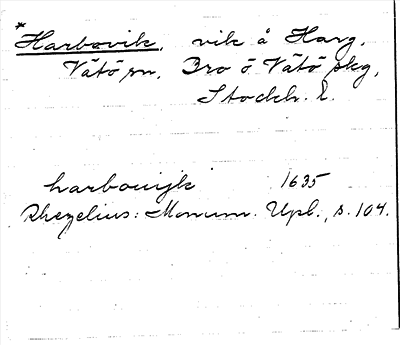 *
Harbovik, vik å Harg,
Vätö sn, Bro o. Vätö skg,
Stockh. l.
harbouijk 1635
Rhezelius: Monum. Upl., s. 104.